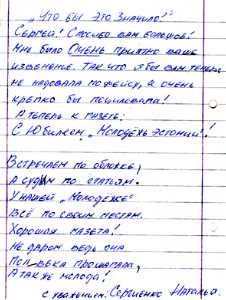 "Что бы это значило?"
Сергей! Спасибо вам большое!
Мне было ОЧЕНЬ приятно ваше
извинение. Так что я бы вам теперь
не надавала по фейсу, а очень
крепко бы поцеловала!
А теперь к музею:
С Юбилеем, "Молодёжь Эстонии"!

Встречаем по обложке,
А судим по статьям.
У нашей "Молодёжи"
Всё по своим местам.
Хорошая газета!
Не даром ведь она
Пол-века прошагала,
А так же молода!
С уважением: Сергиенко Наталья.